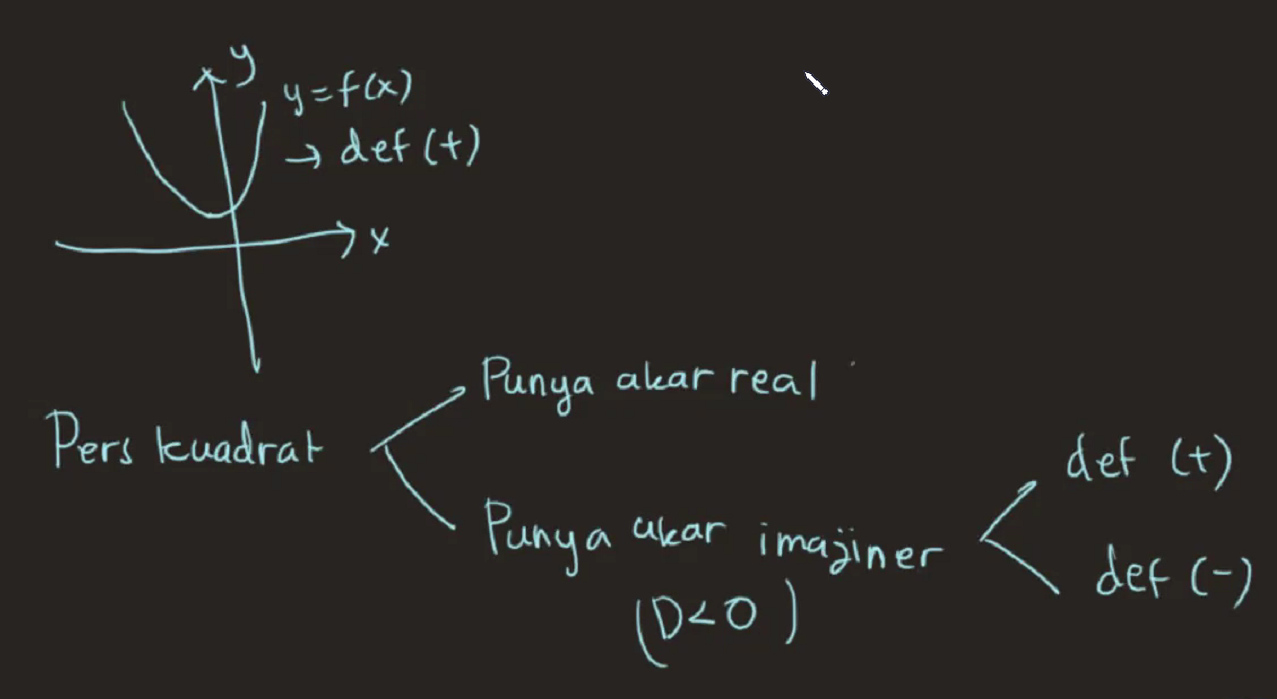 y
y = f(x)
→ def (+)
x
Pers kuadrat
Punya akar real
Punya akar imajiner
(D<0)
def (+)
def (-)